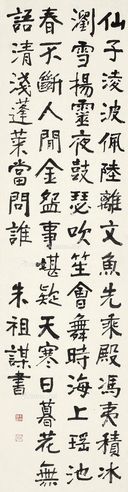 仙子淩波佩陸離文魚先乘殿馮夷積冰
瀏雪揚靈夜鼓瑟吹笙會舞時海上瑶池
春不斷人閒金盌事堪疑天寒日暮花無
語清淺蓬萊當問誰 朱祖謀書